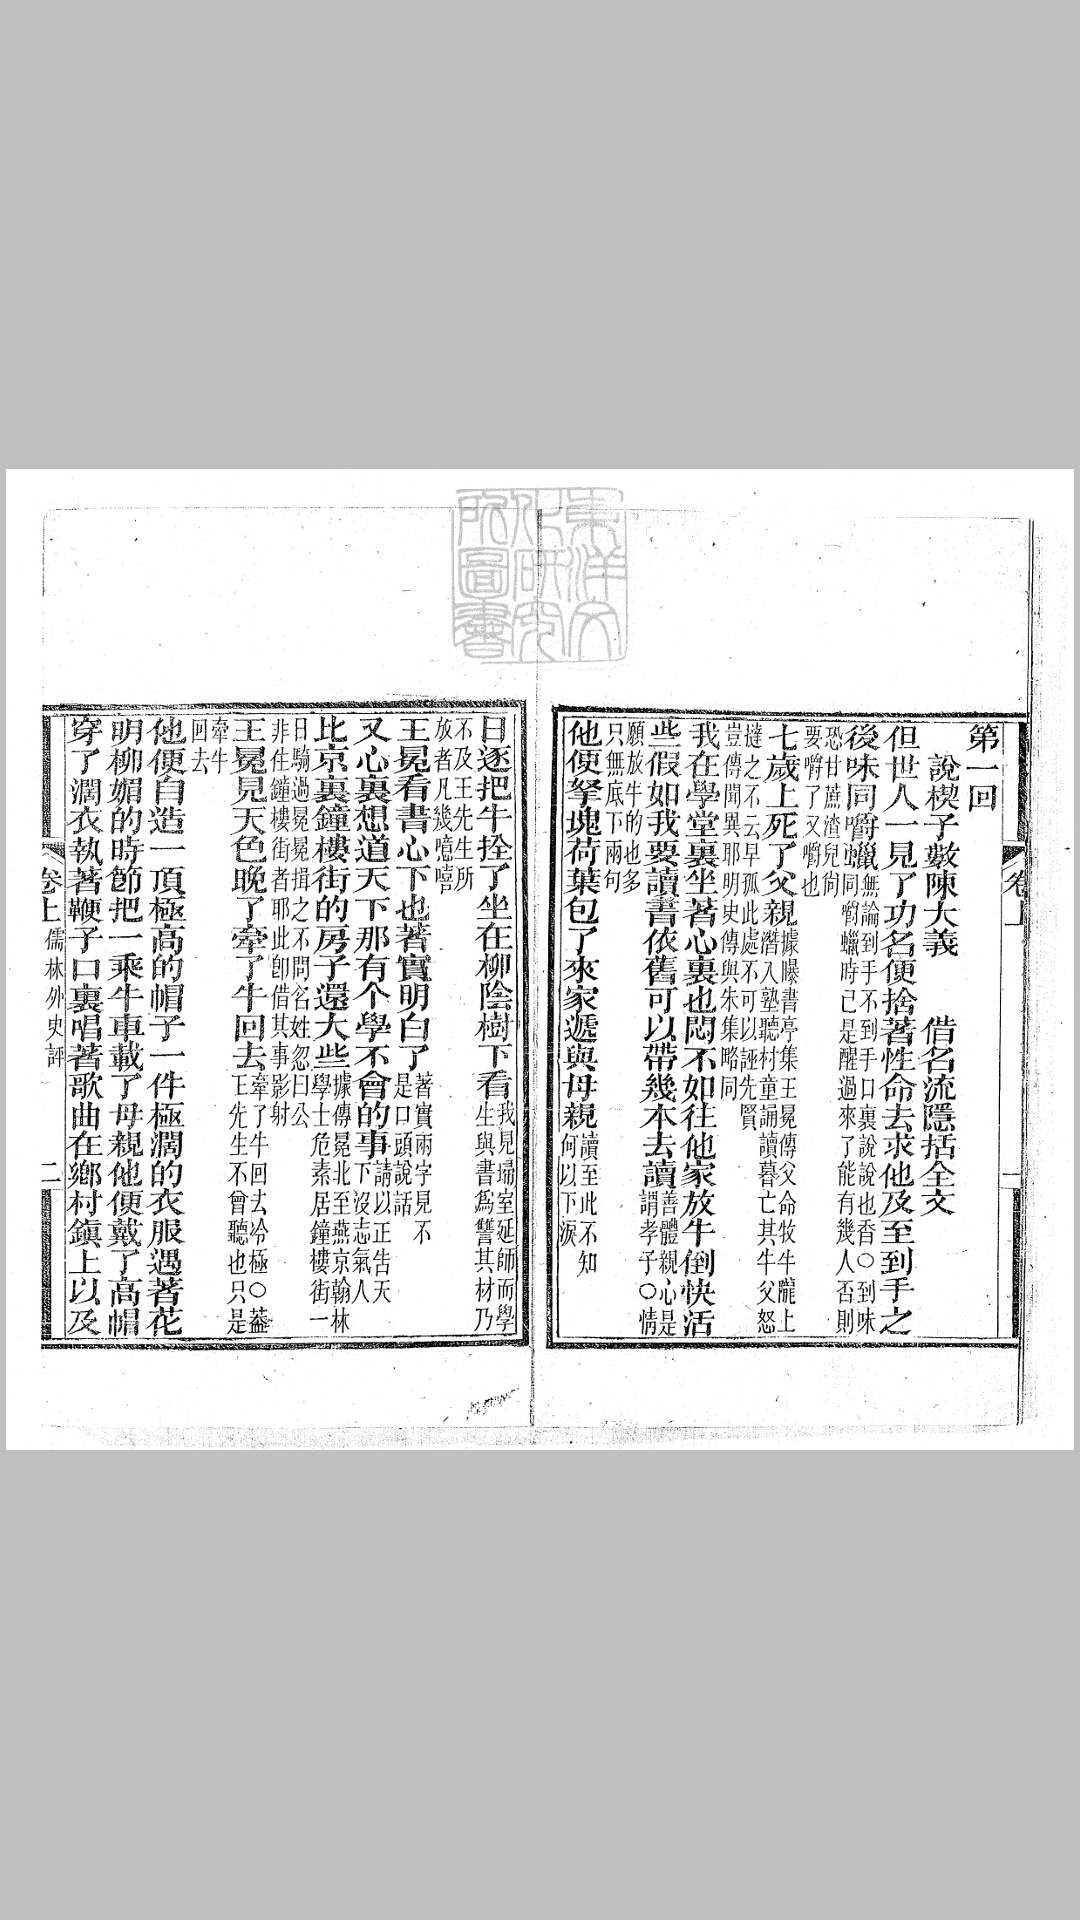 東洋文
化研究
所圖書
卷上
第一回
說楔子敷陳大義　借名流隱括全文
但世人一見了功名便捨著性命去求他及至到手之
後味同嚼蠟無論到手不到手口裏說說也香〇到味
同嚼蠟時已是醒過來了能有幾人否則
恐甘蔗渣兒尙
要嚼了又嚼也
七歲上死了父親據曝書亭集王冕傳父命牧牛隴上
潛入塾聽村童誦讀暮亡其牛父怒
撻之不云早孤此處不可以誣先賢
豈傳聞異耶明史傳與朱集略同
我在學堂裏坐著心裏也悶不如往他家放牛倒快活
些假如我要讀書依舊可以帶幾本去讀善體親心是
謂孝子〇情
願放牛的也多
只無底下兩句
他便拏塊荷葉包了來家遞與母親讀至此不知
何以下淚
日逐把牛拴了坐在柳陰樹下看我見塲室延師而學
生與書爲讐其材乃
不及王先生所
放者凡幾噫嘻
王冕看書心下也著實明白了著實兩字見不
是口頭說話
又心裏想道天下那有个學不會的事請以正告天
下沒志氣人
比京裏鐘樓街的房子還大些據傳冕北至燕京翰林
學士危素居鐘樓街一
日騎過冕冕揖之不問名姓忽曰公
非住鐘樓街者耶此卽借其事影射
王冕見天色晚了牽了牛回去牽了牛回去冷極〇葢
王先生不曾聽也只是
牽牛
回去
他便自造一頂極高的帽子一件極濶的衣服遇著花
明柳媚的時節把一乘牛車載了母親他便戴了高帽
穿了濶衣執著鞭子口裏唱著歌曲在鄉村鎭上以及
卷上　儒林外史評　二